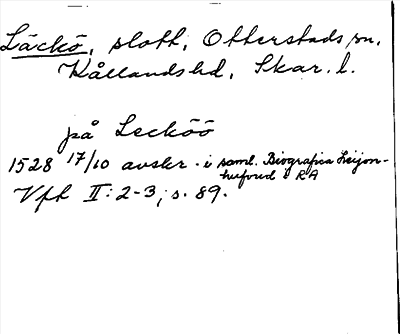 Läckö, slott, Otterstads sn,
Kållands hd, Skar. l.
på Lecköö
1528 17/10 avskr. i saml. Biografica Leijon-
hufvud i RA
Vfh II: 2-3, s. 89.